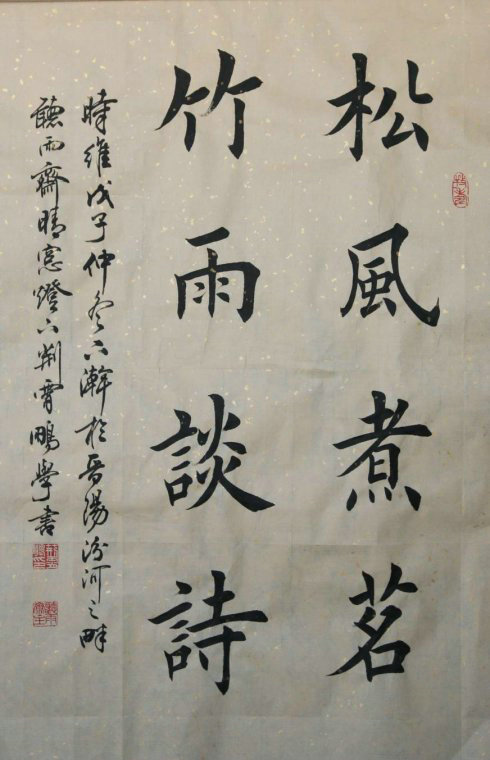 松風煮茗
竹雨談詩
時維戊子仲冬下澣於晋陽汾河之畔
聽雨齋晴窓燈下荆霄鵬學書